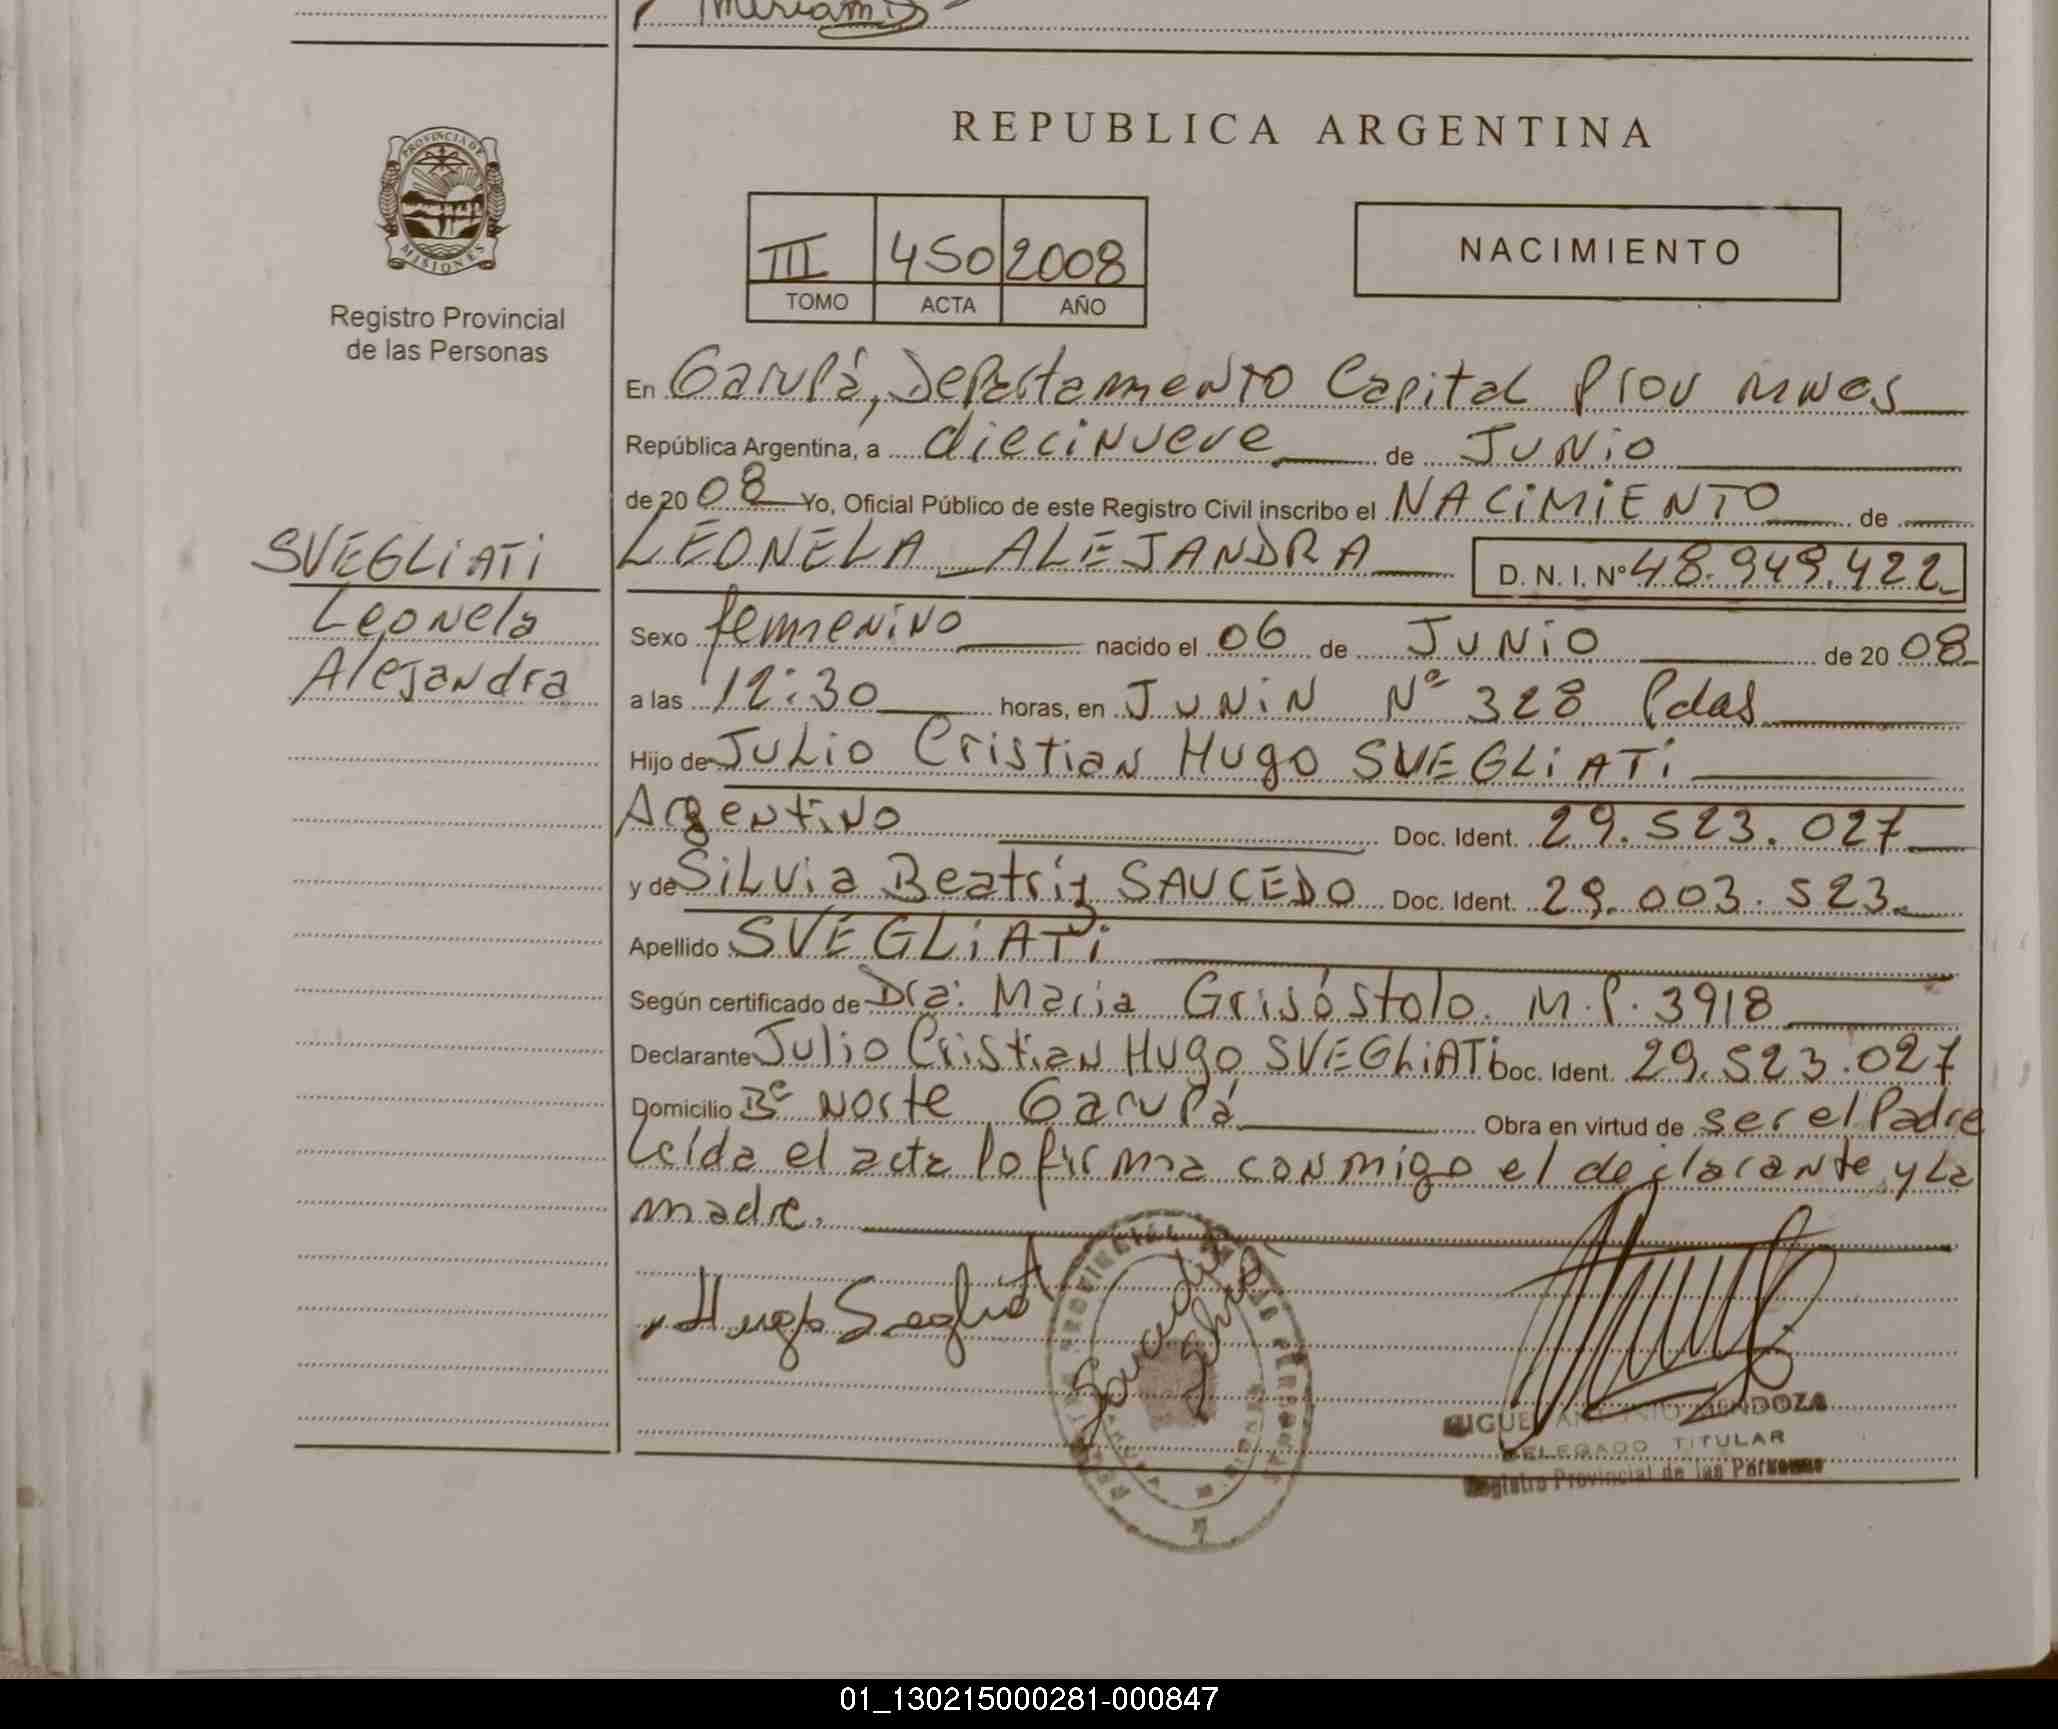 Miriam
PROVINCIA DE
MISIONES
Registro Provincial
de las Personas
REPUBLICA ARGENTINA
III 450 2008
TOMO ACTA AÑO
NACIMIENTO
En Garupá, Departamento Capital Prov mnes
República Argentina, a diecinueve de Junio
de 20 08 Yo, Oficial Público de este Registro Civil inscribo el NACIMIENTO de
SVEGLIATI
Leonela
Alejandra
LEONELA ALEJANDRA D. N. I. Nº 48.949.422
Sexo femenino nacido el 06 de Junio de 20 08
a las 12:30 horas, en Junin Nº 328 Pdas
Hijo de Julio Cristian Hugo SVEGLIATI
Argentino Doc. Ident. 29.523.027
y de Silvia Beatríz SAUCEDO Doc. Ident. 29.003.523
Apellido SVEGLIATI
Según certificado de Dra: Maria Grisóstolo. M.P. 3918
Declarante Julio Cristian Hugo SVEGLIATI Doc. Ident. 29.523.027
Domicilio Bº Norte Garupá Obra en virtud de ser el Padre
Leída el acta lo firma conmigo el declarante y la
madre.
Hugo
MIGUEL ANTONIO MENDOZA
DELEGADO TITULAR
Registro Provincial de las Personas
01_130215000281-000847